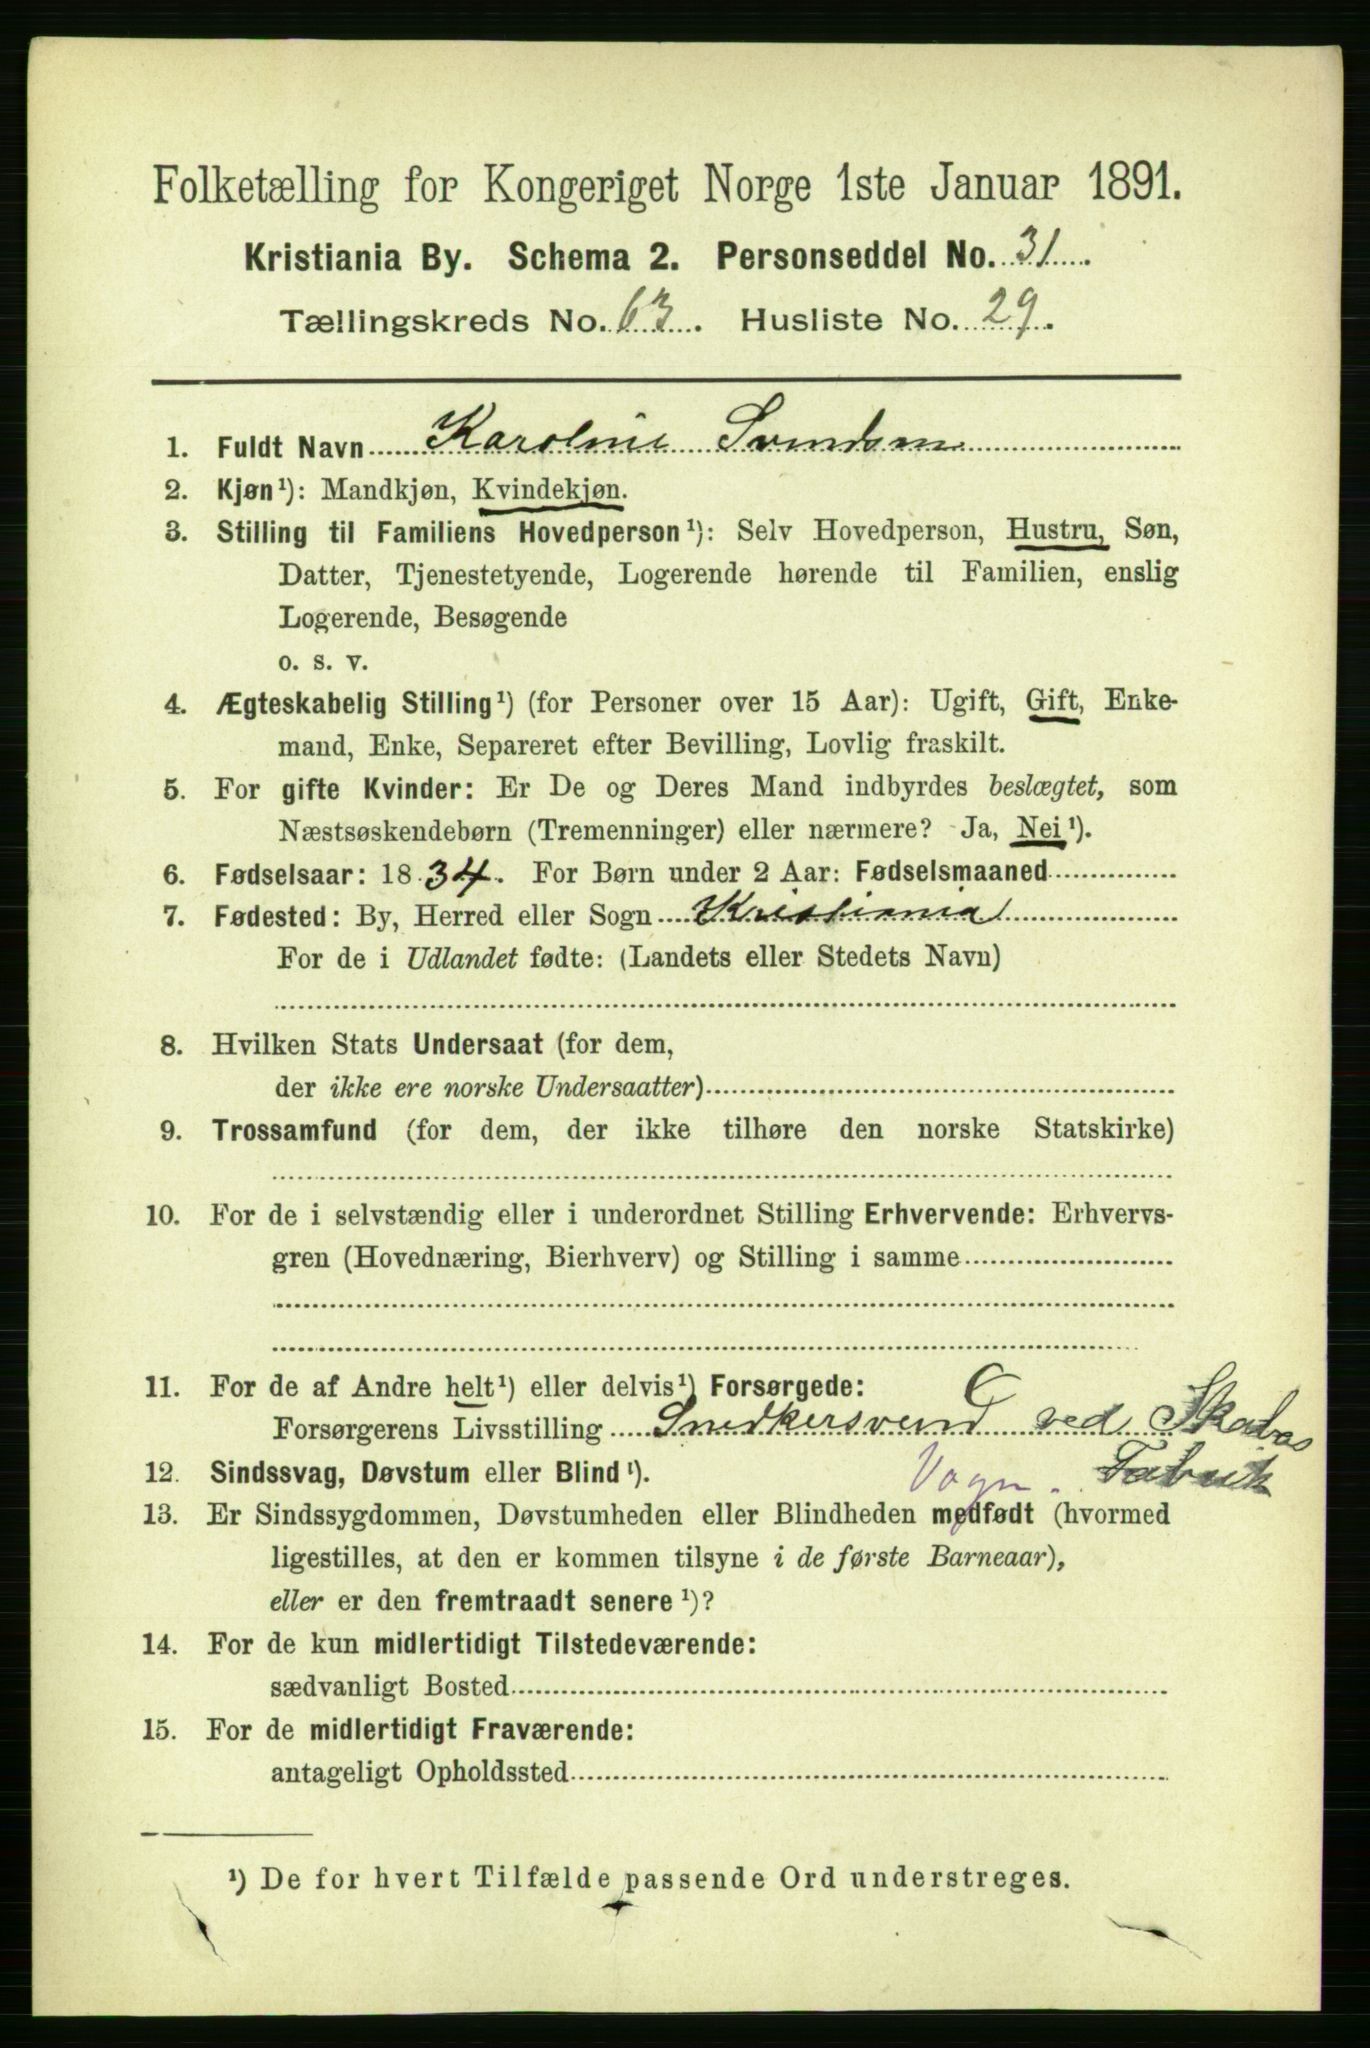 Folketælling for Kongeriget Norge 1ste Januar 1891.
Kristiania By. Schema 2. Personseddel No. 31.
Tællingskreds No. 63. Husliste No. 29.
1. Fuldt Navn Karoline Svendsen
2. Kjøn¹): Mandkjøn, Kvindekjøn.
3. Stilling til Familiens Hovedperson¹): Selv Hovedperson, Hustru, Søn,
Datter, Tjenestetyende, Logerende hørende til Familien, enslig
Logerende, Besøgende
o. s. v.
4. Ægteskabelig Stilling¹) (for Personer over 15 Aar): Ugift, Gift, Enke-
mand, Enke, Separeret efter Bevilling, Lovlig fraskilt.
5. For gifte Kvinder: Er De og Deres Mand indbyrdes beslægtet, som
Næstsøskendebørn (Tremenninger) eller nærmere? Ja, Nei¹).
6. Fødselsaar: 1834. For Børn under 2 Aar: Fødselsmaaned
7. Fødested: By, Herred eller Sogn Kristiania
For de i Udlandet fødte: (Landets eller Stedets Navn)
8. Hvilken Stats Undersaat (for dem,
der ikke ere norske Undersaatter)
9. Trossamfund (for dem, der ikke tilhøre den norske Statskirke)
10. For de i selvstændig eller i underordnet Stilling Erhvervende: Erhvervs-
gren (Hovednæring, Bierhverv) og Stilling i samme
11. For de af Andre helt¹) eller delvis¹) Forsørgede: C
Forsørgerens Livsstilling Snedkersvend ved Skabos
Vogn. Fabrik
12. Sindssvag, Døvstum eller Blind¹).
13. Er Sindssygdommen, Døvstumheden eller Blindheden medfødt (hvormed
ligestilles, at den er kommen tilsyne i de første Barneaar),
eller er den fremtraadt senere¹)?
14. For de kun midlertidigt Tilstedeværende:
sædvanligt Bosted
15. For de midlertidigt Fraværende:
antageligt Opholdssted
¹) De for hvert Tilfælde passende Ord understreges.